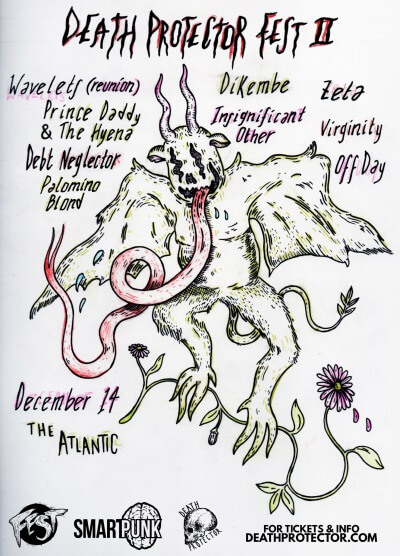 Death Protector Fest II
Wavelets (reunion)
Prince Daddy
& The Hyena
Debt Neglector
Palomino
Blond
Dikembe
Insignificant
Other
Zeta
Virginity
Off Day
December 14
The Atlantic
FEST
SMARTPUNK
DEATH
PROTECTOR
FOR TICKETS & INFO
DEATHPROTECTOR.COM